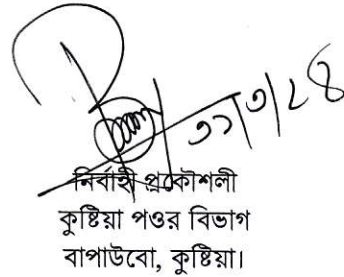 ৩১/৩/২৪
নির্বাহী প্রকৌশলী
কুষ্টিয়া পওর বিভাগ
বাপাউবো, কুষ্টিয়া।